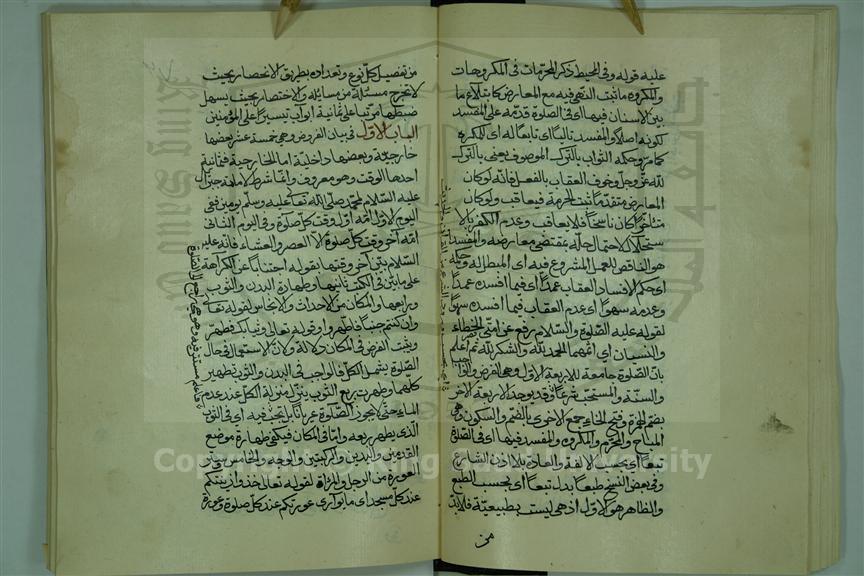 عليه قوله وفي المحيط ذكر المحرمات في المكروهات
والمكروه ما ثبت النهي فيه مع المعارض كابتلاع ما
بين الاسنان فيها اي في الصلوة قدمه على المفسد
لكونه اصلا والمفسد تاليا اي تابعا له اي للمكروه
كما مر وحكمه الثواب بالترك الموصوف يعني بالترك
لله عز وجل وخوف العقاب بالفعل فانه لو كان
المعارض متقدما ثبت الحرمة فيعاقب ولو كان
متاخرا كان ناسخا فلا يعاقب وعدم الكفر بالا
ستحلال لاحتمال حله بمقتضى معارضه والمفسد
هو الناقض للعمل المشروع فيه اي المبطل له وحكمه
اي حكم الافساد العقاب عمدا اي فيما افسده عمدا
وعدمه سهوا اي عدم العقاب فيما افسده سهوا
لقوله عليه الصلوة والسلام رفع عن امتي الخطاء
والنسيان اي اثمهما الحمد لله والشكر لله ثم اعلم
بان الصلوة جامعة للاربعة الاول وهي الفرض والواجب
والسنة والمستحب شرعا وقد يوجد الاربعة الاخر
بضم الهمزة وفتح الخاء جمع الاخرى بالضم والسكون وهي
المباح والمحرم والمكروه والمفسد فيها اي في الصلوة
تبعا اي بحسب الالفة والعادة بلا اذن الشارع
وفي بعض النسخ طبعا بدل تبعا اي بحسب الطبع
والظاهر هو الاول اذ هي ليست بطبيعية فلا بد
من
من تفصيل كل نوع وتعداده بطريق الانحصار بحيث
لا تخرج مسئلة من مسائله والاختصار بحيث يسهل
ضبطها مرتبا على ثمانية ابواب تيسيرا على المؤمنين
الباب الاول في بيان الفروض وهي خمسة عشر بعضها
خارجية وبعضها داخلية اما الخارجية فثمانية
احدها الوقت وهو معروف وانما شرط لامامة جبرائيل
عليه السلام لمحمد صلى الله تعالى عليه وسلم يومين ففي
اليوم الاول امه اول وقت كل صلوة وفي اليوم الثاني
امه آخر وقت كل صلوة الا العصر والعشاء فانه عليه
السلام بين آخر وقتهما بقوله اجتنابا عن الكراهة
على ما بين في الكتب ثانيها وطهارة البدن والثوب
ورابعها والمكان من الاحداث والانجاس لقوله تعالى
وان كنتم جنبا فاطهروا وقوله تعالى وثيابك فطهر
ويثبت الفرض في المكان دلالة ولان الاستعمال في حال
الصلوة يشمل الكل فالواجب في البدن والثوب تطهير
كلهما وطهرت ربع الثوب ينزل منزلة الكل عند عدم
الماء حتى لا يجوز الصلوة عريانا بل يجب فيه اي في الثوب
الذي يطهر ربعه واما في المكان فيكفي طهارة موضع
القدمين واليدين والركبتين والجبهة والخامس وستر
العورة من الرجل والمرأة لقوله تعالى خذوا زينتكم
عند كل مسجد اي ما يواري عورتكم عند كل صلوة وعورة
Copyright © King Saud University